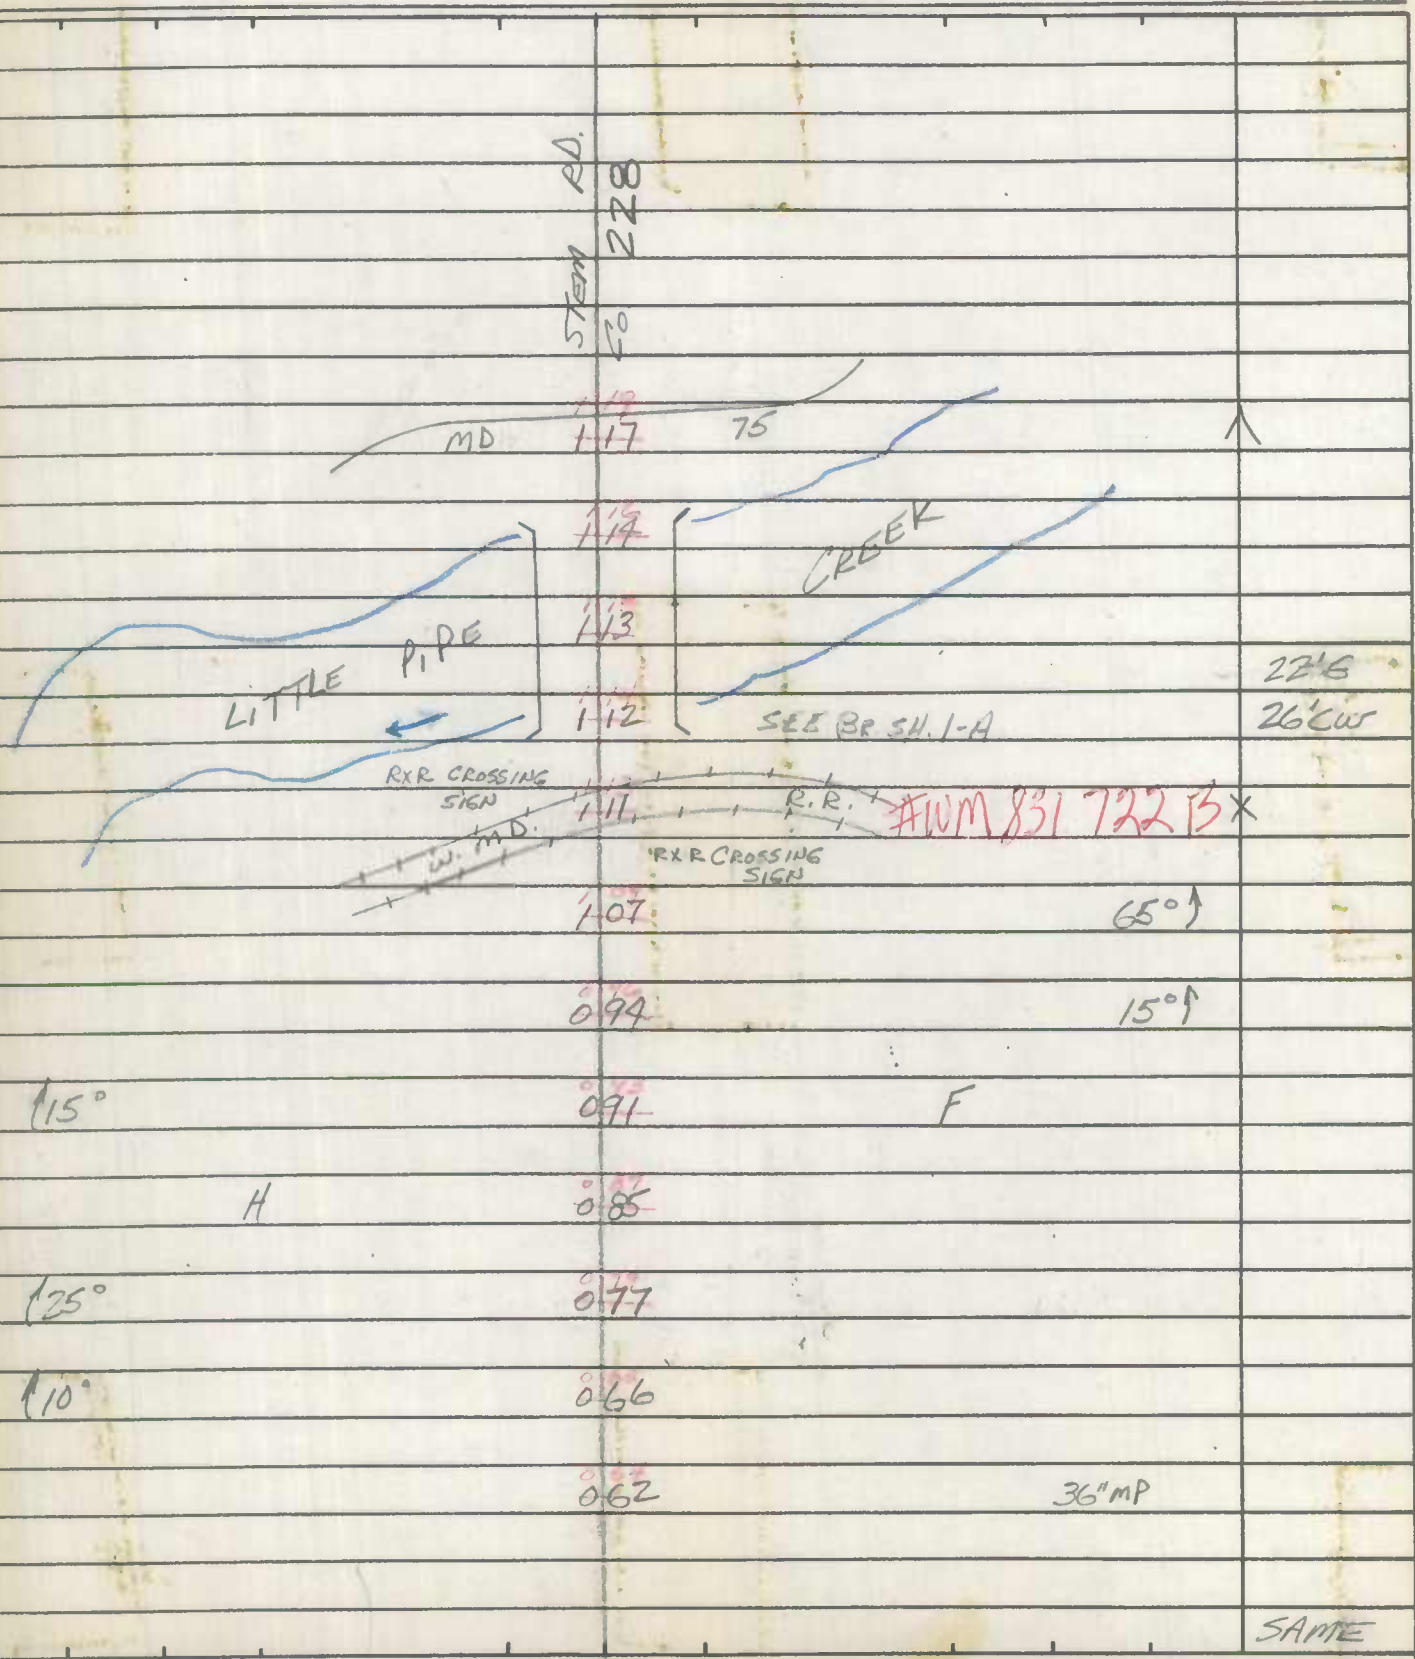 STEM RD.
CO 228
1.19
MD 1.17 75
1.14
CREEK
1.13
LITTLE PIPE
22'G
1.12 SEE BR. SH. 1-A 26'CW
RXR CROSSING
SIGN
1.11 R.R. #WM 831 722 B X
W. MD.
RXR CROSSING
SIGN
1.07 65°
0.94 15°
15° 0.91 F
H 0.85
25° 0.77
10° 0.66
0.62 36"MP
SAME